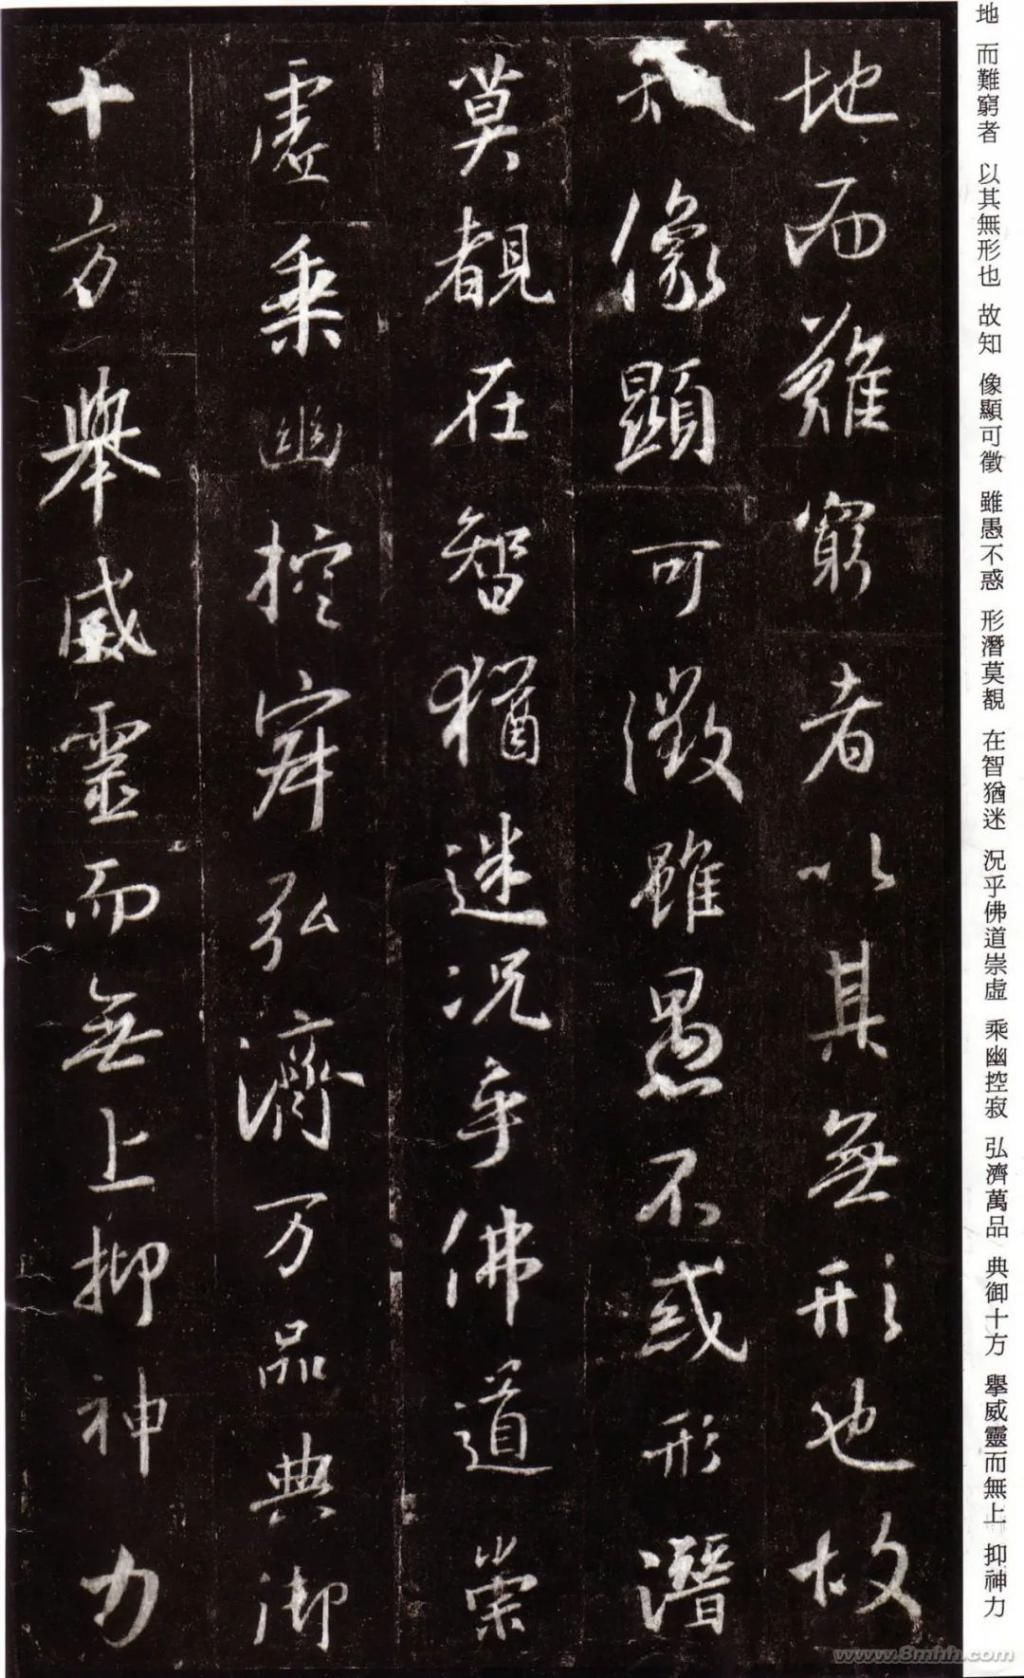 地 而難窮者 以其無形也 故知 像顯可徵 雖愚不惑 形潛莫覩 在智猶迷 況乎佛道崇虛 乘幽控寂 弘濟萬品 典御十方 舉威靈而無上 抑神力
地而難窮者以其無形也故
像顯可徵雖愚不惑形潛
莫覩在智猶迷況乎佛道崇
虛乘幽控寂弘濟万品典御
十方舉威靈而無上抑神力
www.8mhh.com